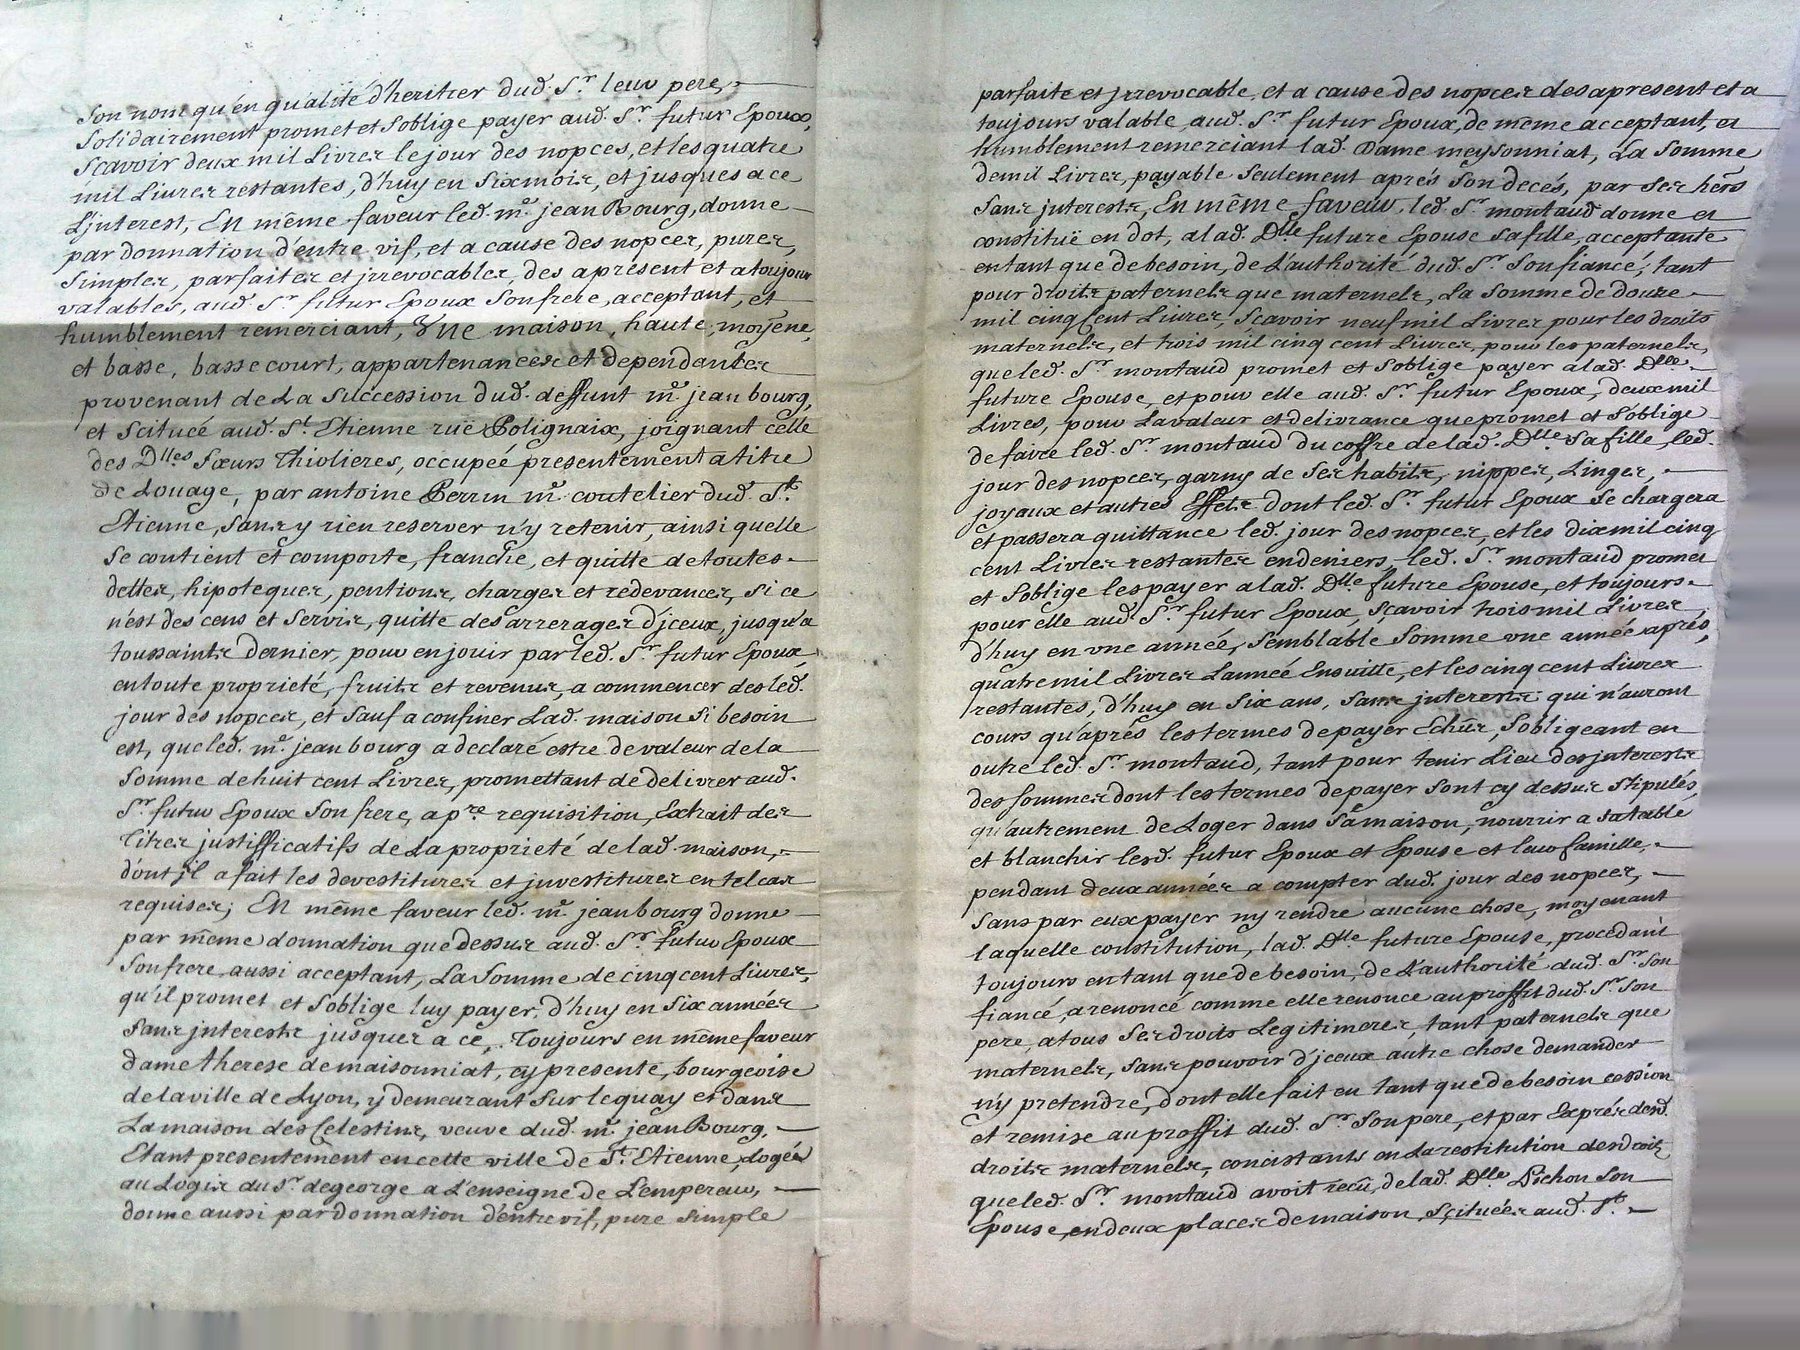 Son nom qu'en qualité d'heritier dud. Sr. leur pere,
Solidairement promet et S'oblige payer aud. Sr. futur Epoux,
Scavoir deux mil Livres le jour des nopces, et les quatre
mil Livres restantes, d'huy en Six mois, et jusques a ce
L'jnterest, En même faveur led. me. jean Bourg, donne
par donnation d'entre vif, et a cause des nopces, pures,
Simples, parfaites et jrrevocables, des apresent et a toujours
valables, aud. Sr. futur Epoux Son frere, acceptant, et
humblement remerciant, Vne maison, haute, moyéne,
et basse, basse court, appartenances et dependances
provenant de La Succession dud. deffunt me. jean bourg,
et Scituée aud. St. Etienne ruë Polignaix, joignant celle
des Dlles Sœurs Thiolieres, occupée presentement a titre
de Louage, par antoine Perrin me. coutelier dud. St.
Etienne, Sans y rien reserver n'y retenir, ainsi quelle
Se contient et comporte, franche, et quitte de toutes
dettes, hipoteques, pentions, charges et redevances, Si ce
n'est des cens et Servis, quitte des arrerages d'jceux, jusqu'a
toussaints dernier, pour en jouir par led. Sr. futur Epoux,
en toute proprieté, fruits et revenus, a commencer des led.
jour des nopces, et Sauf a confiner Lad. maison Si besoin
est, que led. me. jean bourg a declaré estre de valeur de la
Somme de huit cent Livres, promettant de delivrer aud.
Sr. futur Epoux Son frere, a pre. requisition, Extrait des
Titres justifficatifs de La proprieté de lad. maison,
dont jl a fait les devestitures et jnvestitures en tel cas
requises; En même faveur led. me. jean bourg donne
par même donnation que dessus aud. Sr. futur Epoux
Son frere, aussi acceptant, La Somme de cinq cent Livres,
qu'il promet et S'oblige luy payer, d'huy en Six années
Sans jnterests jusques a ce, Toujours en même faveur
dame therese de maisonniat, cy presente, bourgeoise
de la ville de Lyon, y demeurant Sur le quay et dans
La maison des Celestins, veuve dud. me. jean Bourg,
Etant presentement en cette ville de St. Etienne, Logée
au Logis du Sr. degeorge a L'enseigne de L'empereur,
donne aussi par donnation d'entre vif, pure Simple
parfaite et jrrevocable, et a cause des nopces des apresent et a
toujours valable, aud. Sr. futur Epoux, de même acceptant, et
humblement remerciant lad. Dame meysonniat, La Somme
de mil Livres, payable Seulement aprés Son decés, par Ses hers
Sans jnterests, En même faveur, led. Sr. montaud donne et
constituë en dot, a lad. Dlle future Epouse Sa fille, acceptante
en tant que de besoin, de L'authorité dud. Sr. Son fiancé, tant
pour droits paternels que maternels, La Somme de douze
mil cinq Cent Livres, Scavoir neuf mil Livres pour les droits
maternels, et trois mil cinq cent Livres, pour les paternels,
que led. Sr. montaud promet et S'oblige payer a lad. Dlle
future Epouse, et pour elle aud. Sr. futur Epoux, deux mil
Livres, pour La valeur et delivrance que promet et S'oblige
de faire led. Sr. montaud du coffre de lad. Dlle Sa fille, led.
jour des nopces, garny de Ses habits, nippes, Linges,
joyaux et autres Effets dont led. Sr. futur Epoux Se chargera
et passera quittance led. jour des nopces, et les dix mil cinq
cent Livres restantes en deniers led. Sr. montaud promet
et S'oblige les payer a lad. Dlle future Epouse, et toujours
pour elle aud. Sr. futur Epoux, Scavoir trois mil Livres,
d'huy en vne année, Semblable Somme vne année aprés,
quatre mil Livres L'année Ensuitte, et les cinq cent Livres
restantes, d'huy en Six ans, Sans jnterests qui n'auront
cours qu'aprés les termes de payer Echûs, S'obligeant en
outre led. Sr. montaud, tant pour tenir Lieu des jnterests
des Sommes dont les termes de payer Sont cy dessus Stipulés,
qu'autrement de Loger dans Sa maison, nourrir a Sa table
et blanchir lesd. futur Epoux et Epouse et leur famille,
pendant deux années a compter dud. jour des nopces,
Sans par eux payer ny rendre aucune chose, moyenant
laquelle constitution, lad. Dlle future Epouse, procedant
toujours en tant que de besoin, de L'authorité dud. Sr. Son
fiancé, a renoncé comme elle renonce au proffit dud. Sr. Son
pere, a tous Ses droits Legitimeres, tant paternels que
maternels, Sans pouvoir d'jceux autre chose demander
n'y pretendre, dont elle fait en tant que de besoin cession
et remise au proffit dud. Sr. Son pere, et par Exprés desd.
droits maternels, concistants en La restitution des droits
que led. Sr. montaud avoit reçû, de lad. Dlle Pichon Son
Epouse, en deux places de maison, Scituées aud. St.